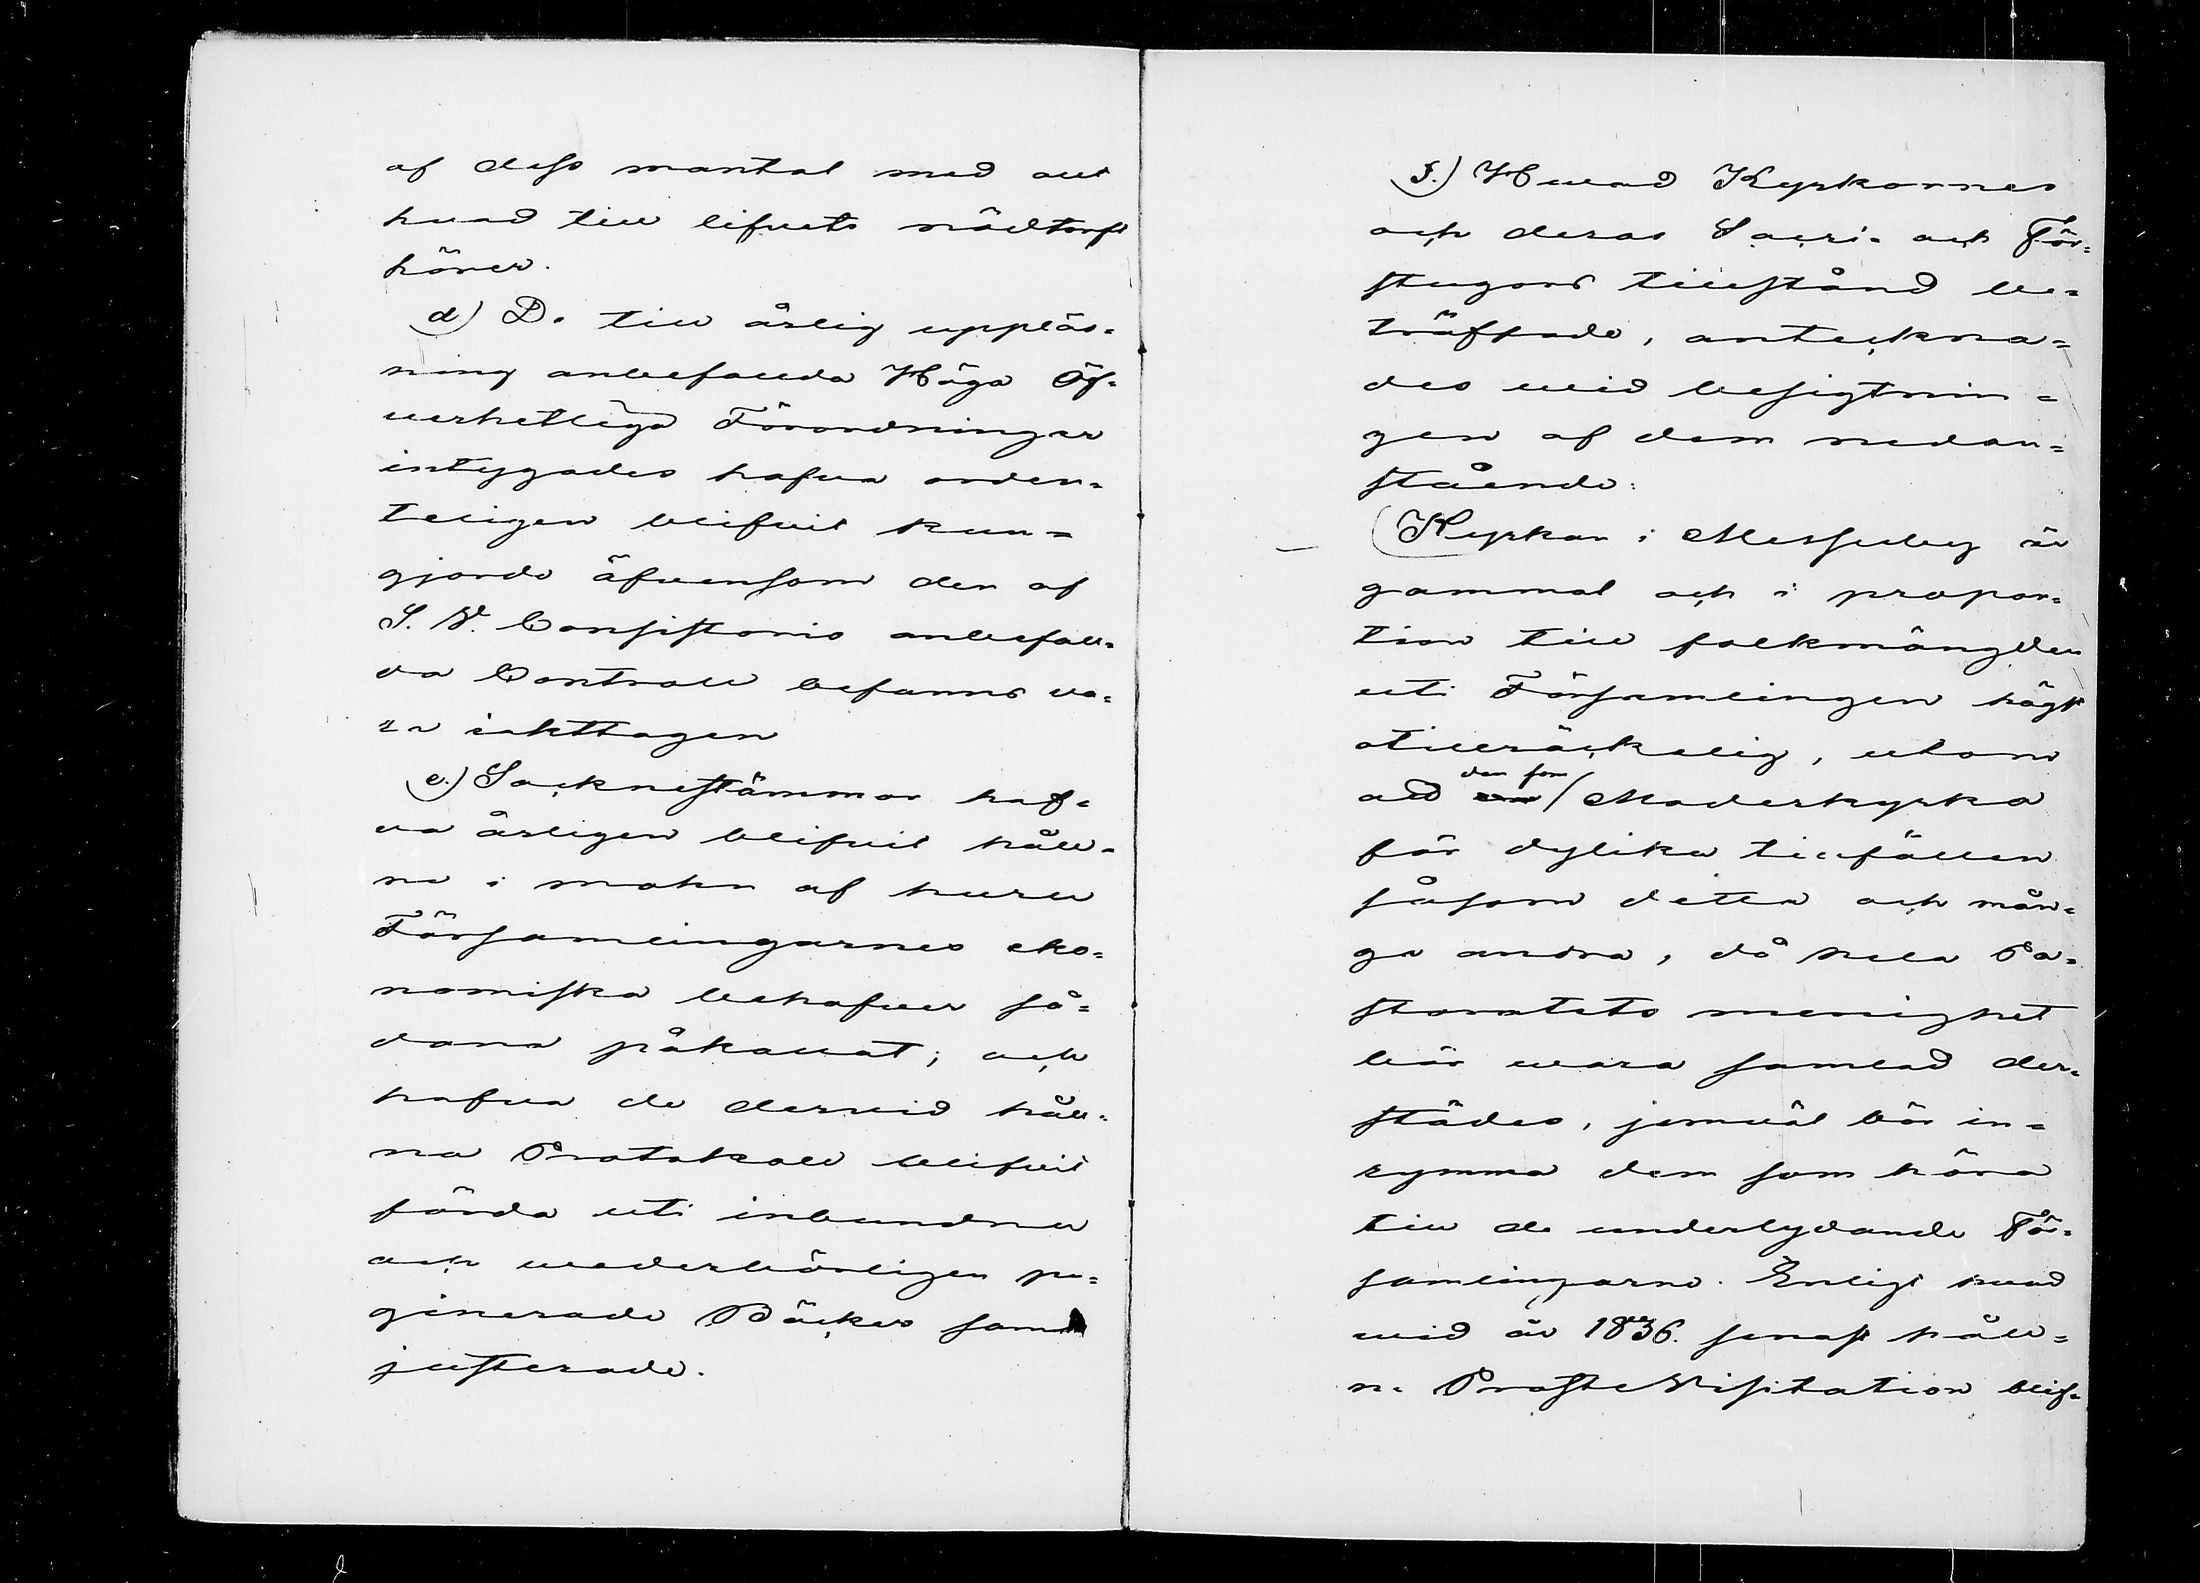 af dess mantal med allt
hvad till lifvets nödtorft
hörer.
d) De till årlig uppläs=
ning anbefallda Höga Öf=
verhetliga Förordningar
intygades hafva orden=
teligen blifvit kun=
gjorde äfvensom den af
S. V. Consistorio anbefall=
da Controll befanns va=
ra iakttagen
e.) Socknestämmor haf=
va årligen blifvit håll=
ne i mohn af huru
Församlingarnes eko=
nomiska behofver så=
dana påkallat; och
hafva de dervid håll=
na Protokoll blifvit
förda uti inbundna
och vederbörligen pa=
ginerade Böcker samt
justerade.
f.) Hvad Kyrkornes
och deras Sacri- och För=
stugors tillstånd be=
träffade, anteckna=
des vid besigtnin=
gen af dem nedan=
stående:
Kyrkan i Messuby är
gammal och i propor=
tion till folkmängden
uti Församlingen högst
otillräckelig, utom
ad den som Moderkyrka
för dylika tillfällen
såsom detta och mån=
ga andra, då hela Pa=
storatets menighet
bör vara samlad der=
städes, jemväl bör in=
rymma dem som höra
till de underlydande För=
samlingarne. Enligt hvad
vid år 1836. senast håll=
ne ProsteVisitation blif=